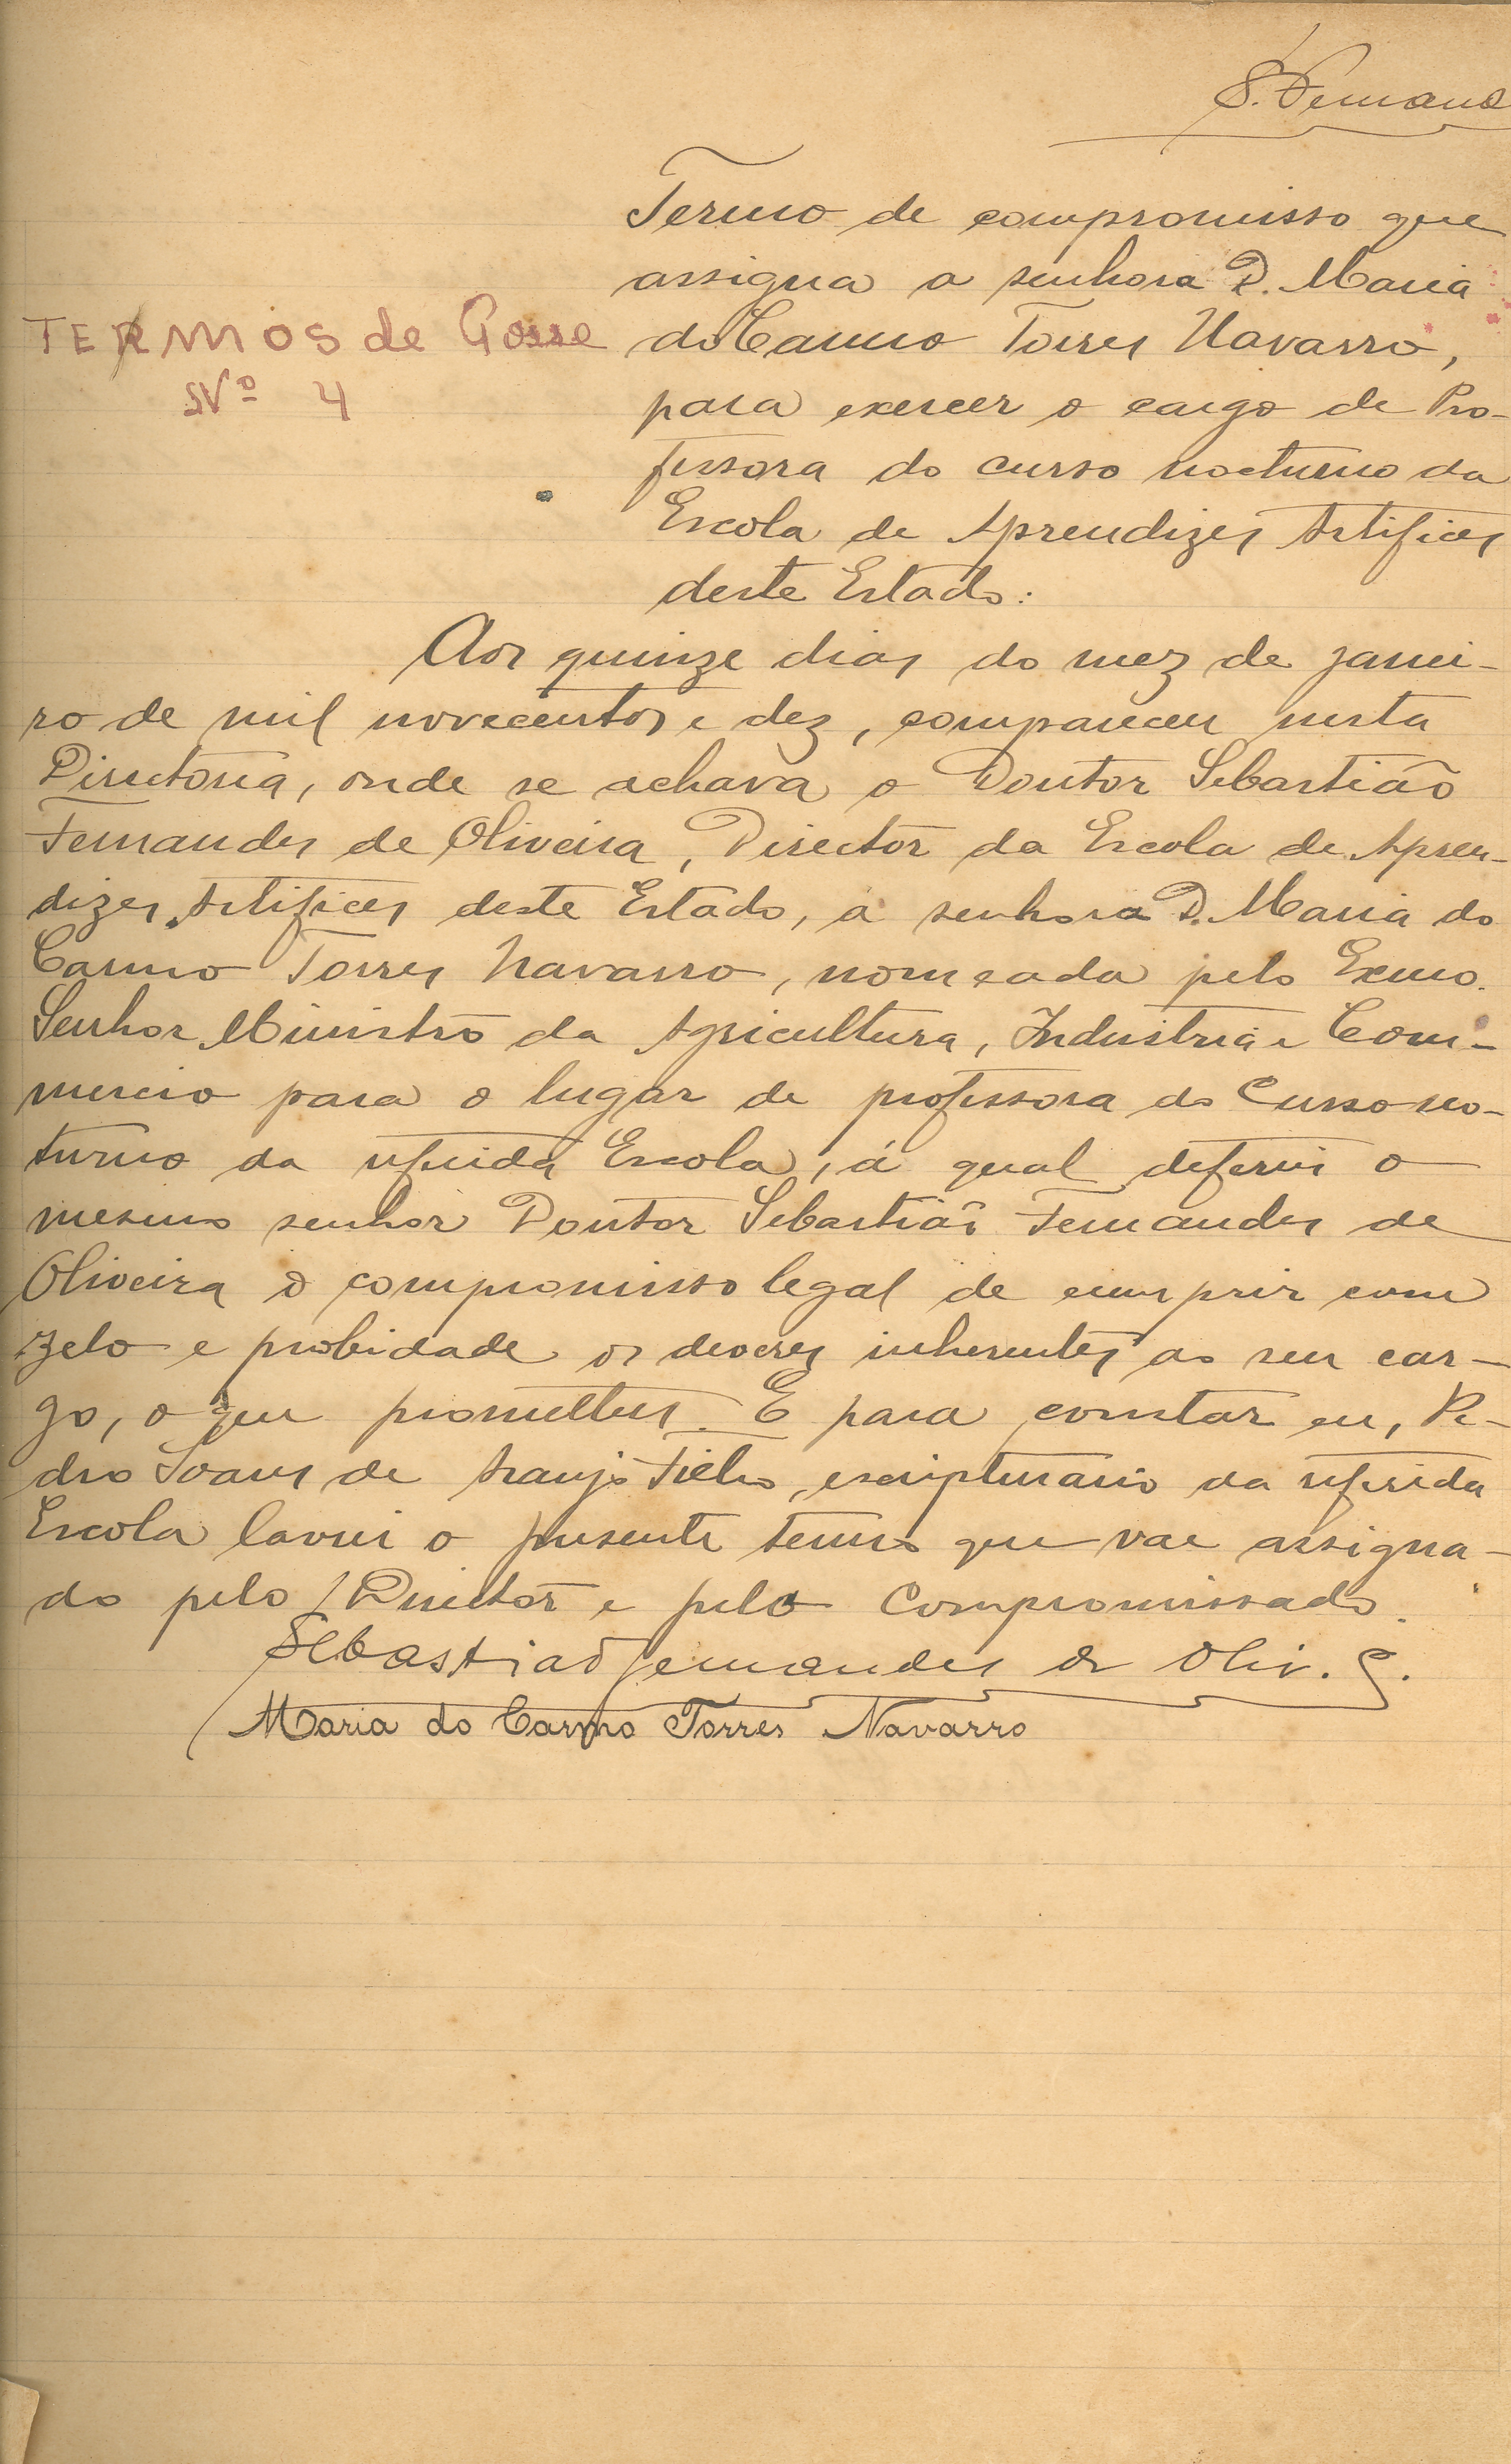 S. Fernand
Termo de compromisso que
assigna a senhora D. Maria
TERMOS de Posse
do Carmo Torres Navarro,
Nº 4
para exercer o cargo de Pro-
fessora do curso nocturno da
Escola de Aprendizes Artifices
deste Estado:
Aos quinze dias do mez de janei-
ro de mil novecentos e dez, compareceu nesta
Directoria, onde se achava o Doutor Sebastião
Fernandes de Oliveira, Director da Escola de Apren-
dizes Artifices deste Estado, a senhora D. Maria do
Carmo Torres Navarro, nomeada pelo Exmo.
Senhor Ministro da Agricultura, Industria e Com-
mercio para o lugar de professora do Curso no-
turno da referida Escola, á qual deferiu o
mesmo senhor Doutor Sebastião Fernandes de
Oliveira o compromisso legal de cumprir com
zelo e probidade os deveres inherentes ao seu car-
go, o que prometteu. E para constar eu, Pe-
dro Soares de Araujo Filho, escripturario da referida
Escola lavrei o presente termo que vae assigna-
do pelo Director e pelo Compromissado.
Sebastião Fernandes de Oliv. S.
Maria do Carmo Torres Navarro